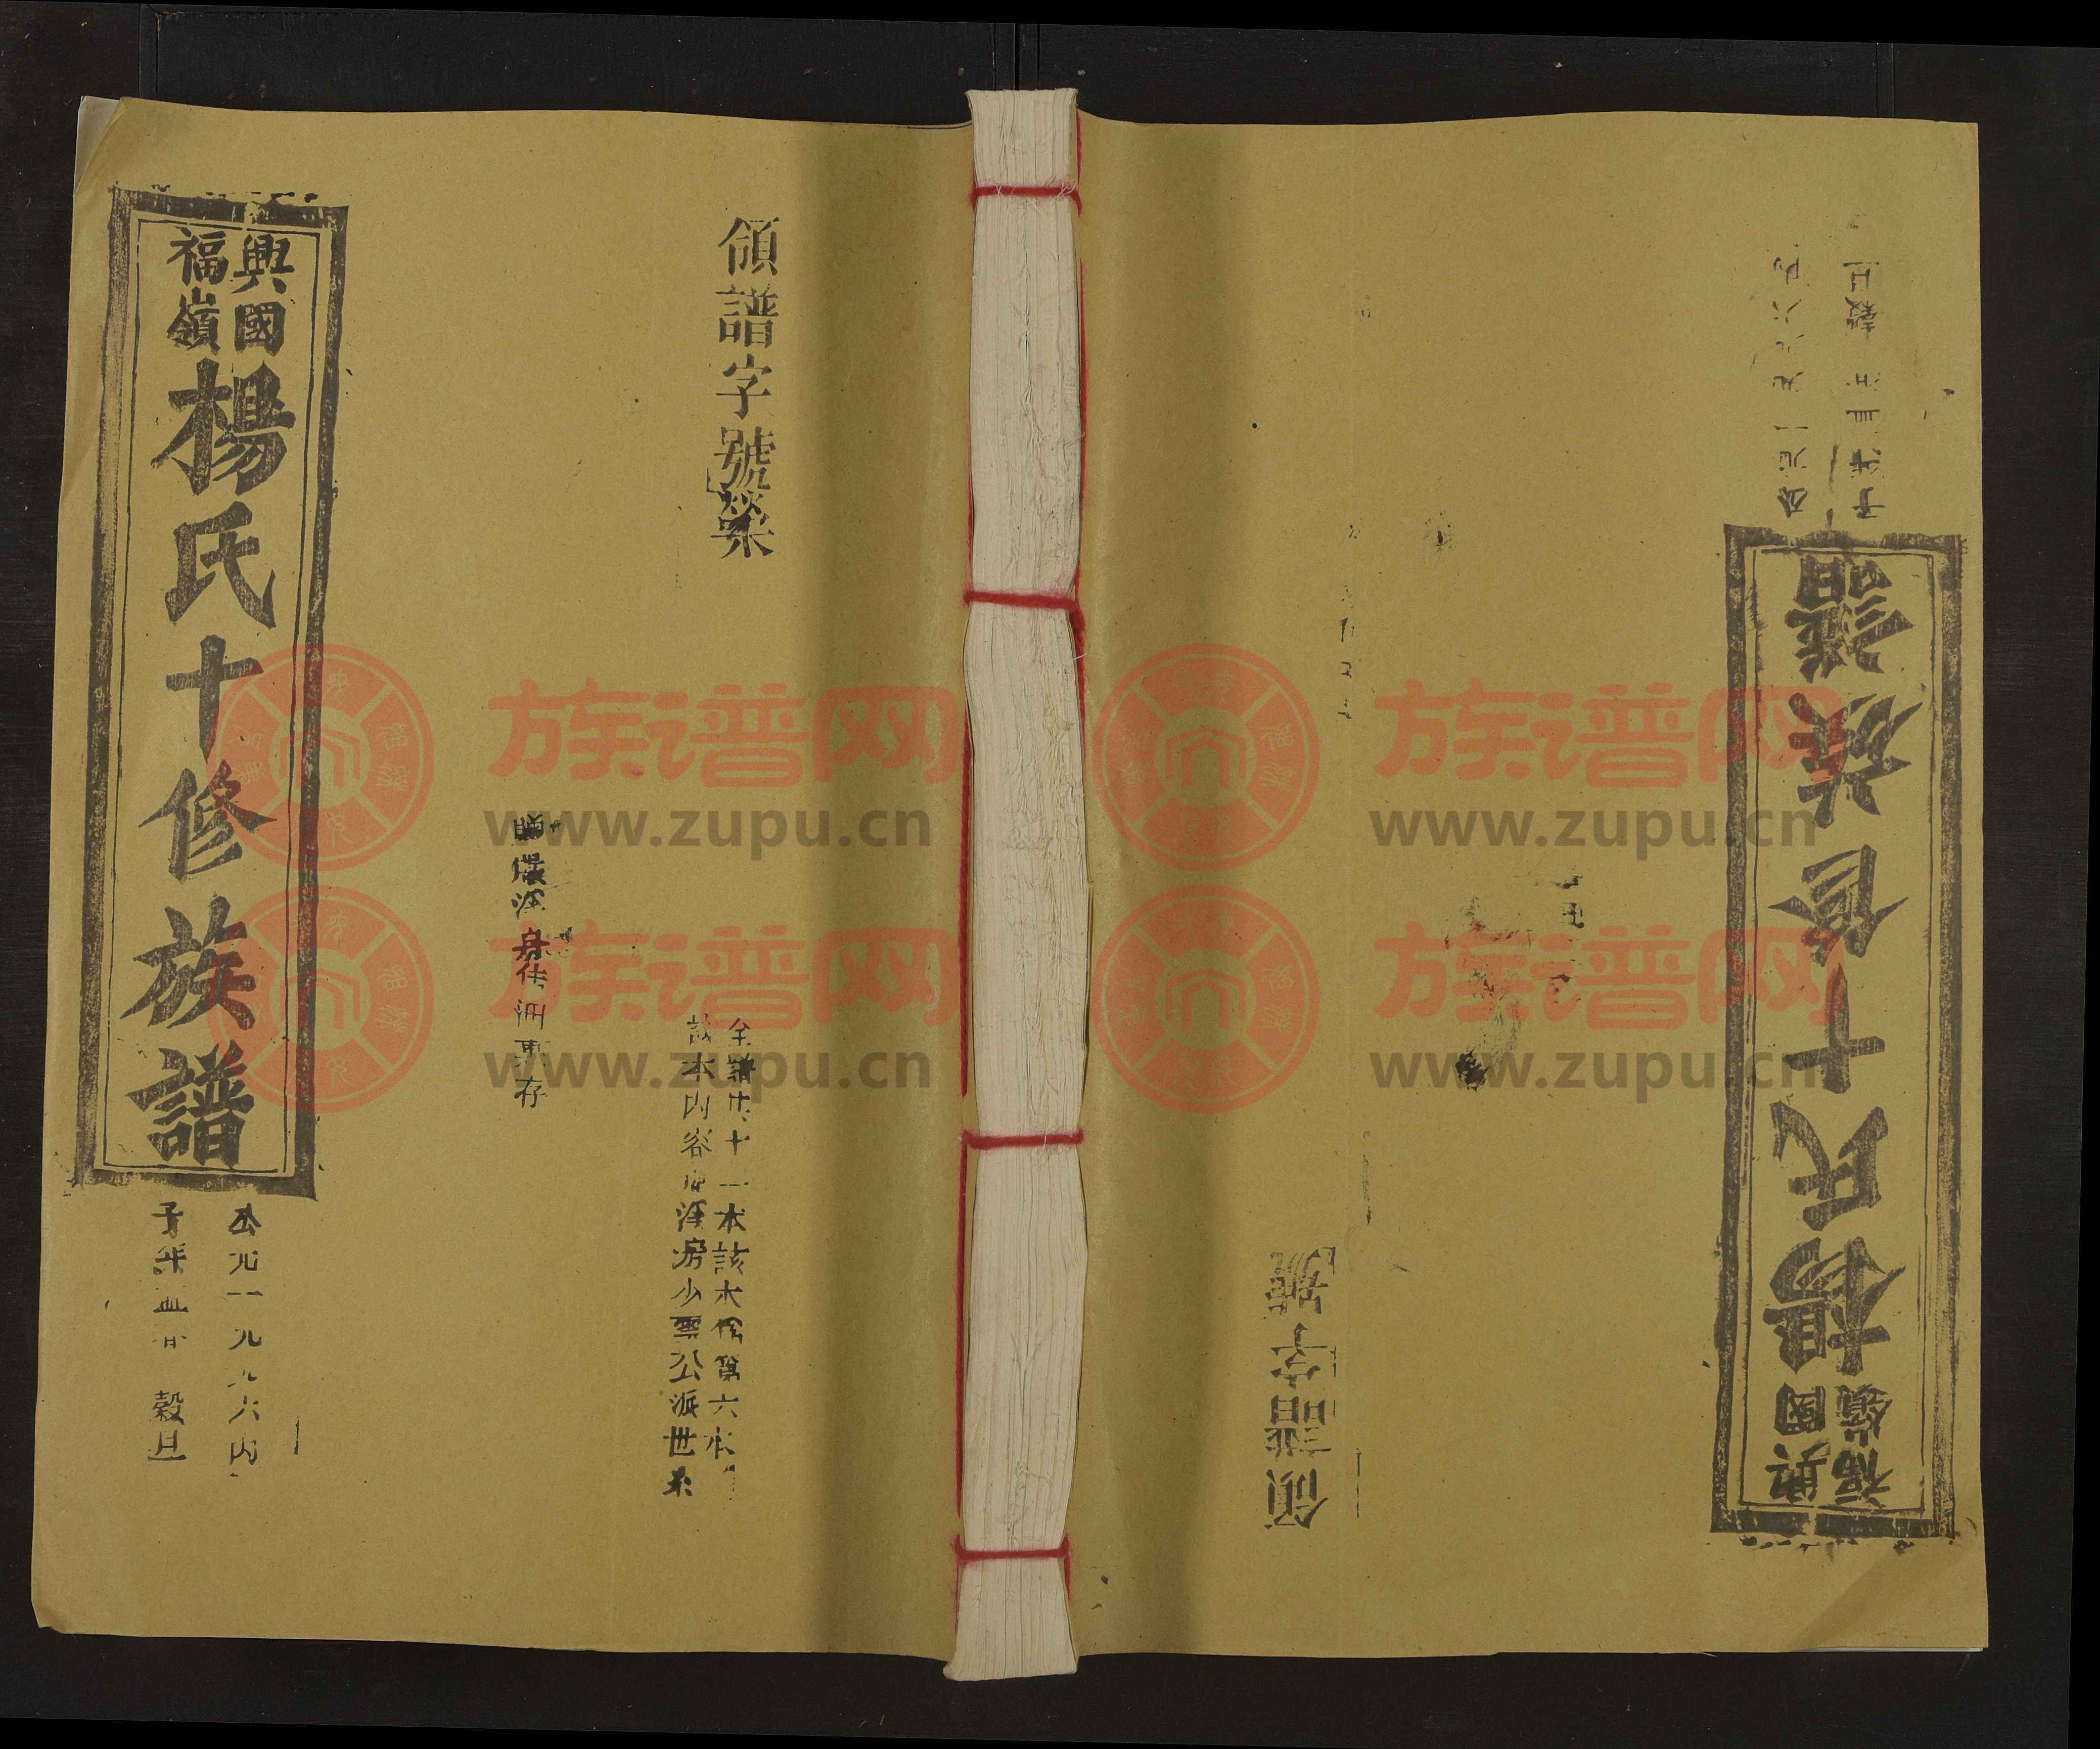 興國
福嶺
楊氏十修族譜
公元一九九六丙
子年孟春 穀旦
領譜字號榮
全譜共十一本該本係第六本
該本內容 派房少雲公派世系
存
領譜字號
興國
福嶺
楊氏十修族譜
公元一九九六丙
子年孟春 穀旦
族谱网
www.zupu.cn
族谱网
www.zupu.cn
族谱网
www.zupu.cn
族谱网
www.zupu.cn